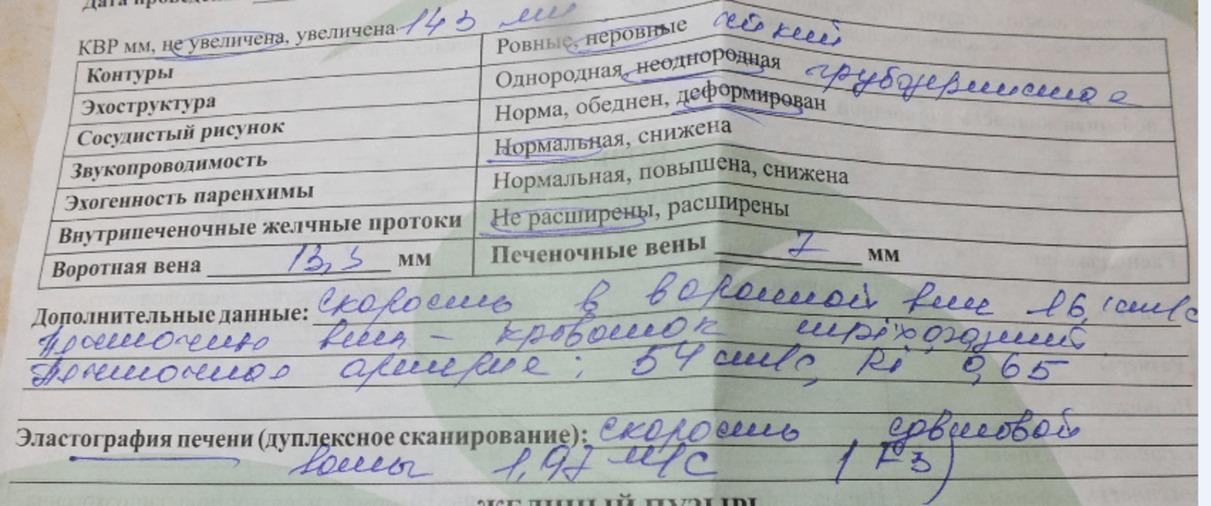 КВР мм, не увеличена, увеличена 143 мм
Контуры Ровные, неровные
Эхоструктура Однородная, неоднородная грубозернистая
Сосудистый рисунок Норма, обеднен, деформирован
Звукопроводимость Нормальная, снижена
Эхогенность паренхимы Нормальная, повышена, снижена
Внутрипеченочные желчные протоки Не расширены, расширены
Воротная вена 13,3 мм Печеночные вены 7 мм
Дополнительные данные: скорость в воротной вене 16,1 см/с
Печеночные вены - кровоток трехфазный
Печеночная артерия: 54 см/с, Ri 0,65
Эластография печени (дуплексное сканирование): скорость сдвиговой
волны 1,97 м/с (F3)
ЖЕЛЧНЫЙ ПУЗЫРЬ